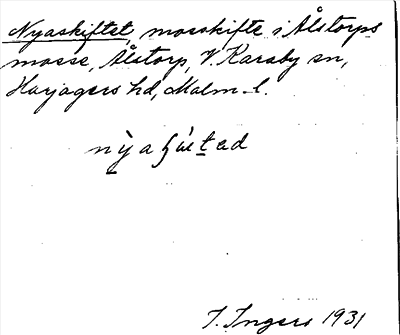 Nyaskiftet, mosskifte i Ålstorps
mosse, Ålstorp, V. Karaby sn,
Harjagers hd, Malm. l.
I. Ingers 1931